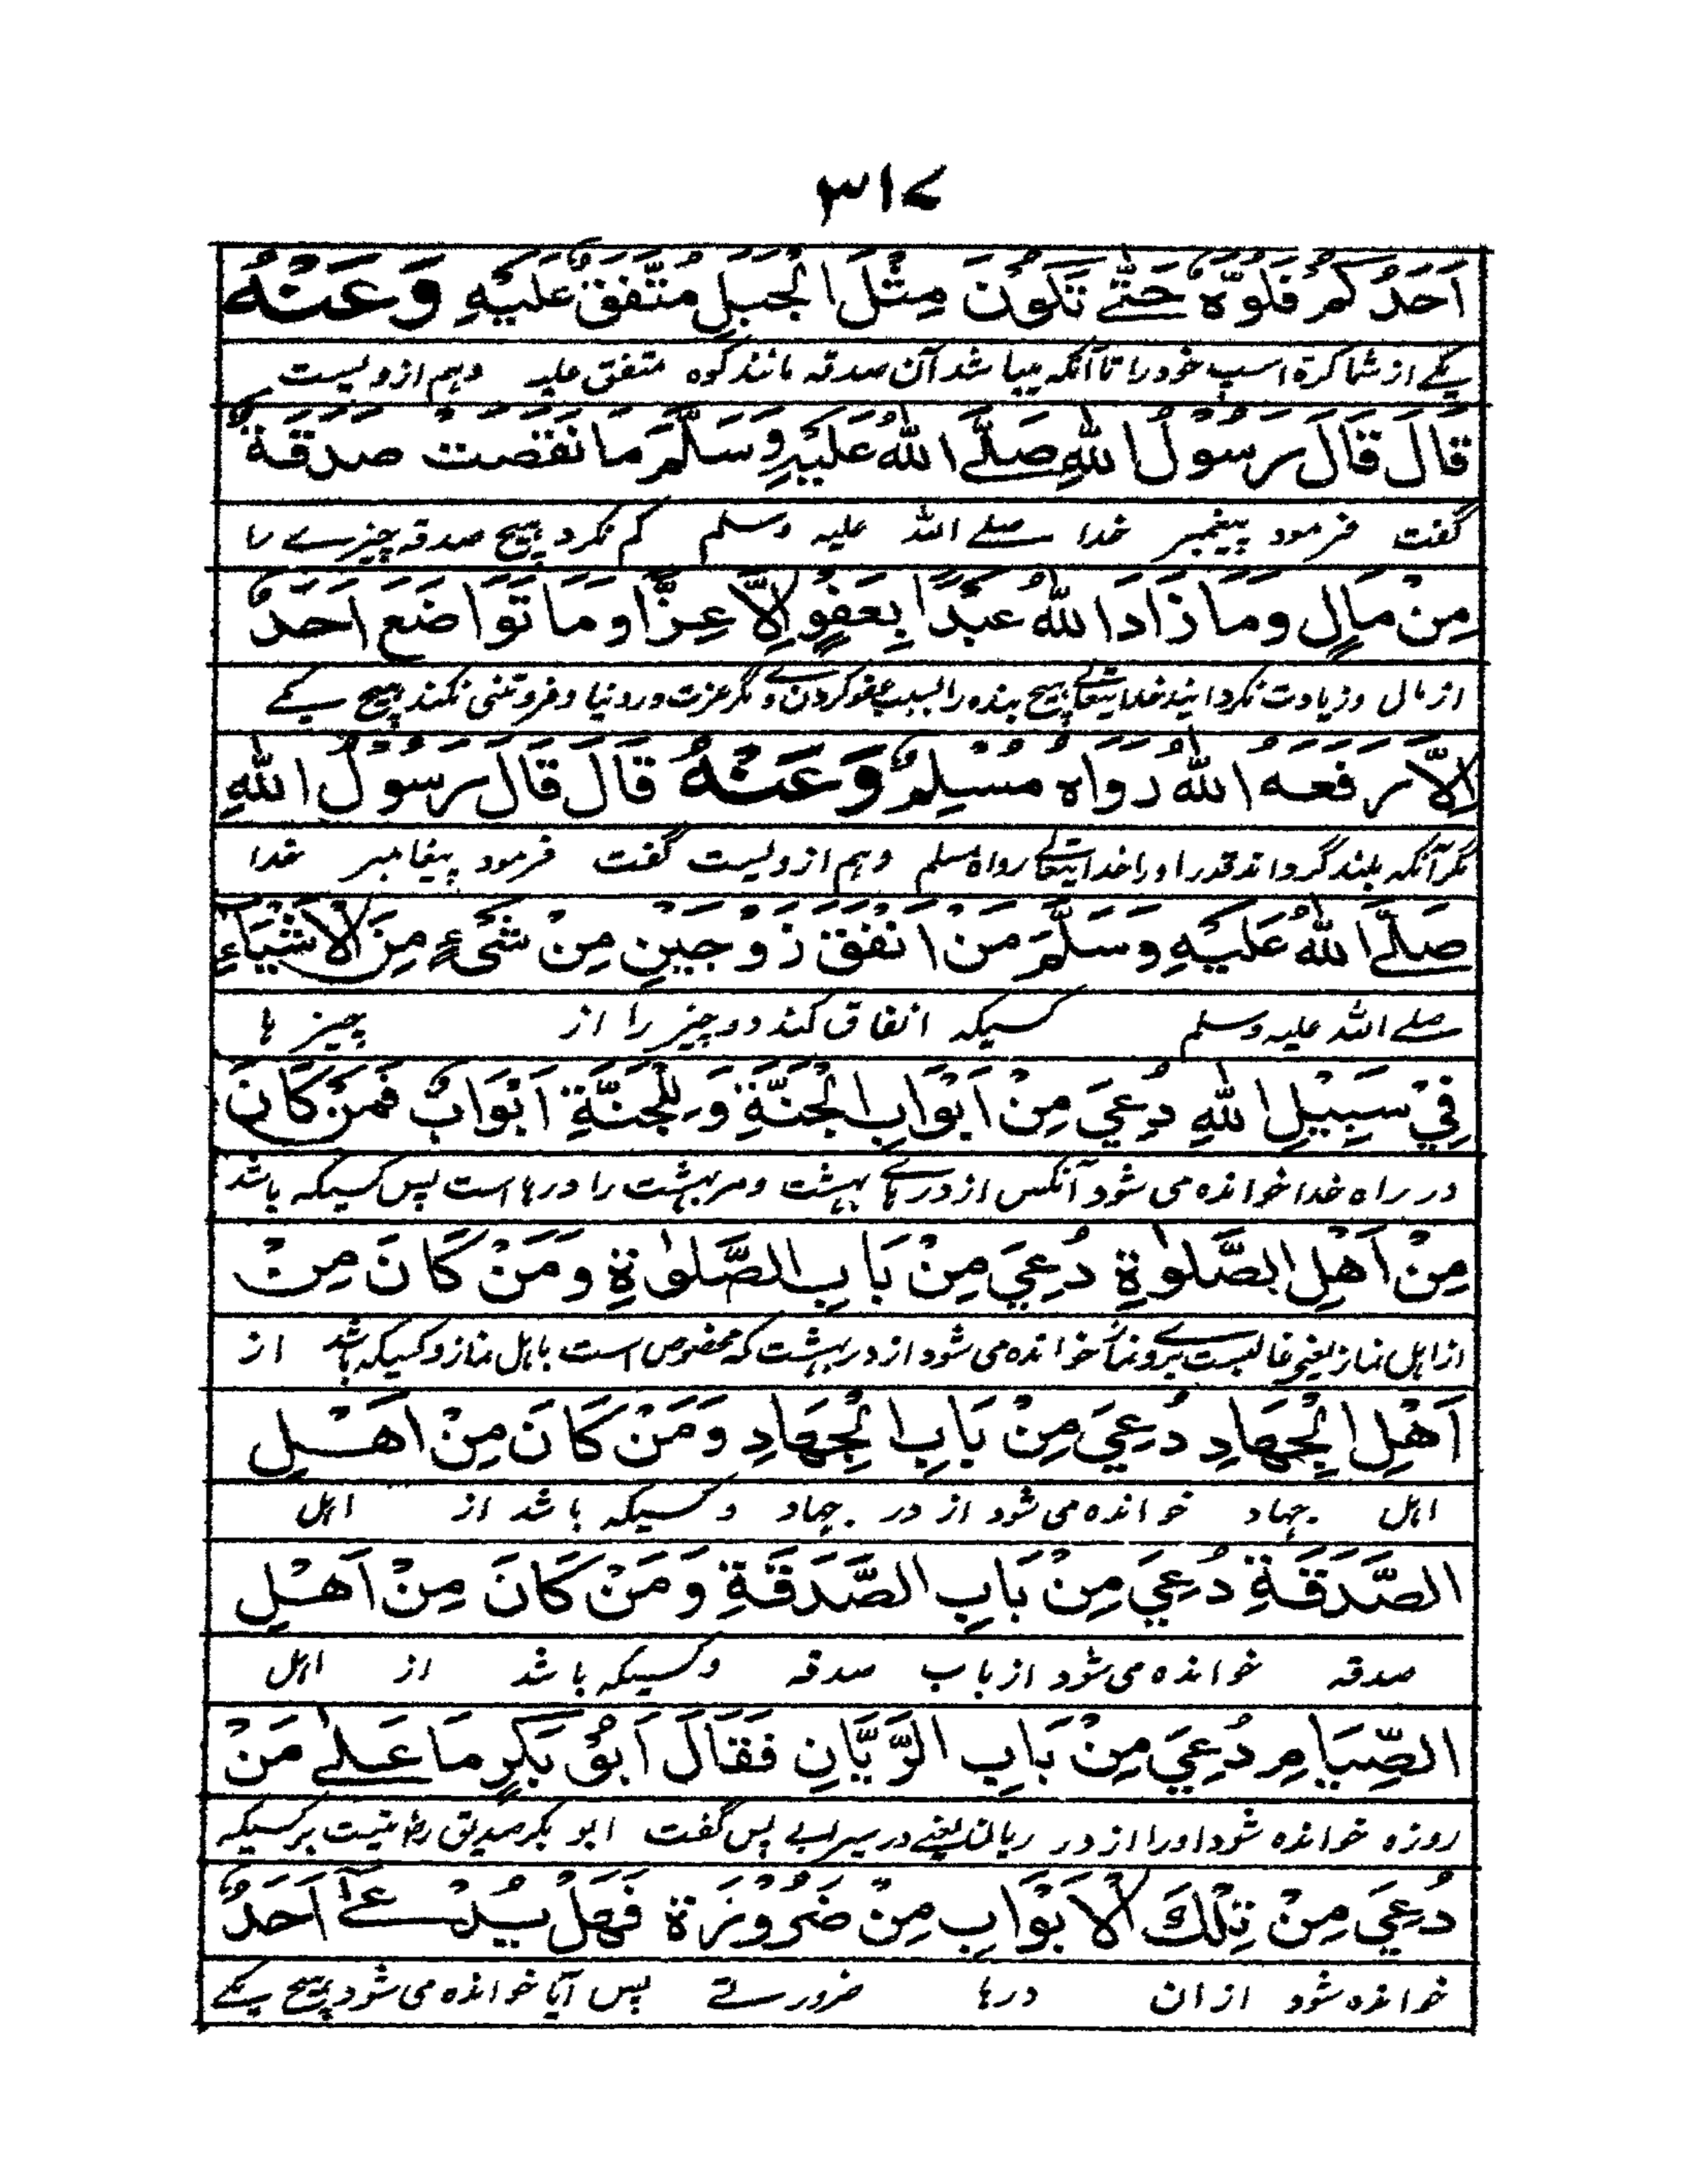 ۳۱۷
اَحَدُكُمْ فَلُوَّهٗ حَتّٰے تَكُوْنَ مِثْلَ الْجَبَلِ مُتَّفَقٌ عَلَيْهِ وَعَنْهُ
یکے از شما کرۀ اسپ خود را تا آنکه میباشد آن صدقه مانند کوه متفق علیه وهم ازویست
قَالَ قَالَ رَسُوْلُ اللهِ صَلَّے اللهُ عَلَيْهِ وَسَلَّمَ مَا نَقَصَتْ صَدَقَةٌ
گفت فرمود پیغمبر خدا صلے الله علیه وسلم کم نکرد هیچ صدقه چیزے را
مِنْ مَالٍ وَمَا زَادَ اللهُ عَبْدًا بِعَفْوٍ اِلَّا عِزًّا وَمَا تَوَاضَعَ اَحَدٌ
از مال وزیادت نکردانید خدایتعالے هیچ بنده را بسبب عفو کردن وے مگر عزت در دنیا و فروتنی نکند هیچ یکے
اِلَّا رَفَعَهُ اللهُ رَوَاهُ مُسْلِمٌ وَعَنْهُ قَالَ قَالَ رَسُوْلُ اللهِ
مگر آنکه بلند گرداند قدر او را خدایتعالے رواه مسلم وهم ازویست گفت فرمود پیغامبر خدا
صَلَّے اللهُ عَلَيْهِ وَسَلَّمَ مَنْ اَنْفَقَ زَوْجَيْنِ مِنْ شَیْءٍ مِنَ الْاَشْيَاءِ
صلے الله علیه وسلم کسیکه انفاق کند دو چیز را از چیز ها
فِيْ سَبِيْلِ اللهِ دُعِيَ مِنْ اَبْوَابِ الْجَنَّةِ وَلِلْجَنَّةِ اَبْوَابٌ فَمَنْ كَانَ
در راه خدا خوانده می شود آنکس از درہاے بہشت ومر بہشت را درہا است پس کسیکه باشد
مِنْ اَهْلِ الصَّلٰوةِ دُعِيَ مِنْ بَابِ الصَّلٰوةِ وَمَنْ كَانَ مِنْ
از اہل نماز یعنے غالبست بروے نماز خوانده می شود از در بہشت که مخصوص است باہل نماز وکسیکه باشد از
اَهْلِ الْجِهَادِ دُعِيَ مِنْ بَابِ الْجِهَادِ وَمَنْ كَانَ مِنْ اَهْلِ
اہل جہاد خوانده می شود از در جہاد وکسیکه باشد از اہل
الصَّدَقَةِ دُعِيَ مِنْ بَابِ الصَّدَقَةِ وَمَنْ كَانَ مِنْ اَهْلِ
صدقه خوانده می شود از باب صدقه وکسیکه باشد از اہل
الصِّيَامِ دُعِيَ مِنْ بَابِ الرَّيَّانِ فَقَالَ اَبُوْ بَكْرٍ مَا عَلٰے مَنْ
روزه خوانده شود او را از در ریان یعنے در سیرابے پس گفت ابو بکر صدیق رض نیست بر کسیکه
دُعِيَ مِنْ تِلْكَ الْاَبْوَابِ مِنْ ضَرُوْرَةٍ فَهَلْ يُدْعٰے اَحَدٌ
خوانده شود ازان درہا ضرورتے پس آیا خوانده می شود ہیچ یکے